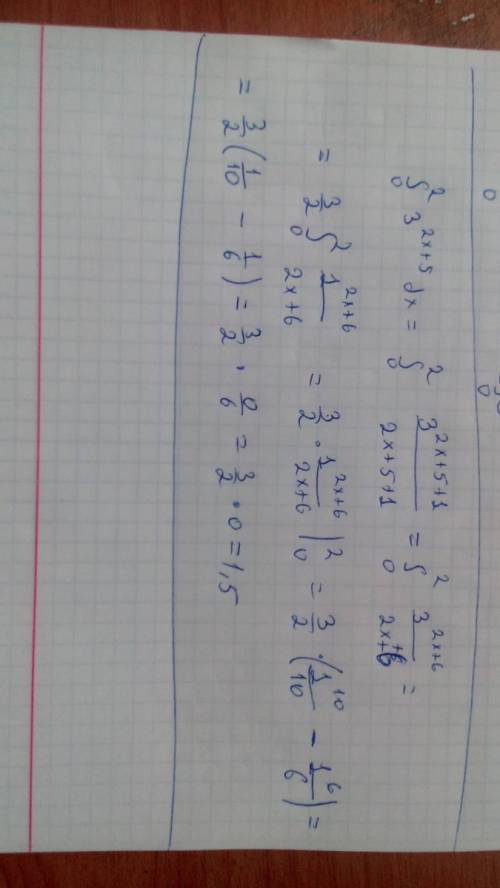 ∫₀² 3^{2x+5} dx = ∫₀² 3^{2x+5+1}/(2x+5+1) = ∫₀² 3^{2x+6}/(2x+6) =
= 3/2 ∫₀² 1^{2x+6}/(2x+6) = 3/2 · 1^{2x+6}/(2x+6) |₀² = 3/2 · (1^{10}/10 − 1^6/6) =
= 3/2 (1/10 − 1/6) = 3/2 · 0/6 = 3/2 · 0 = 1,5